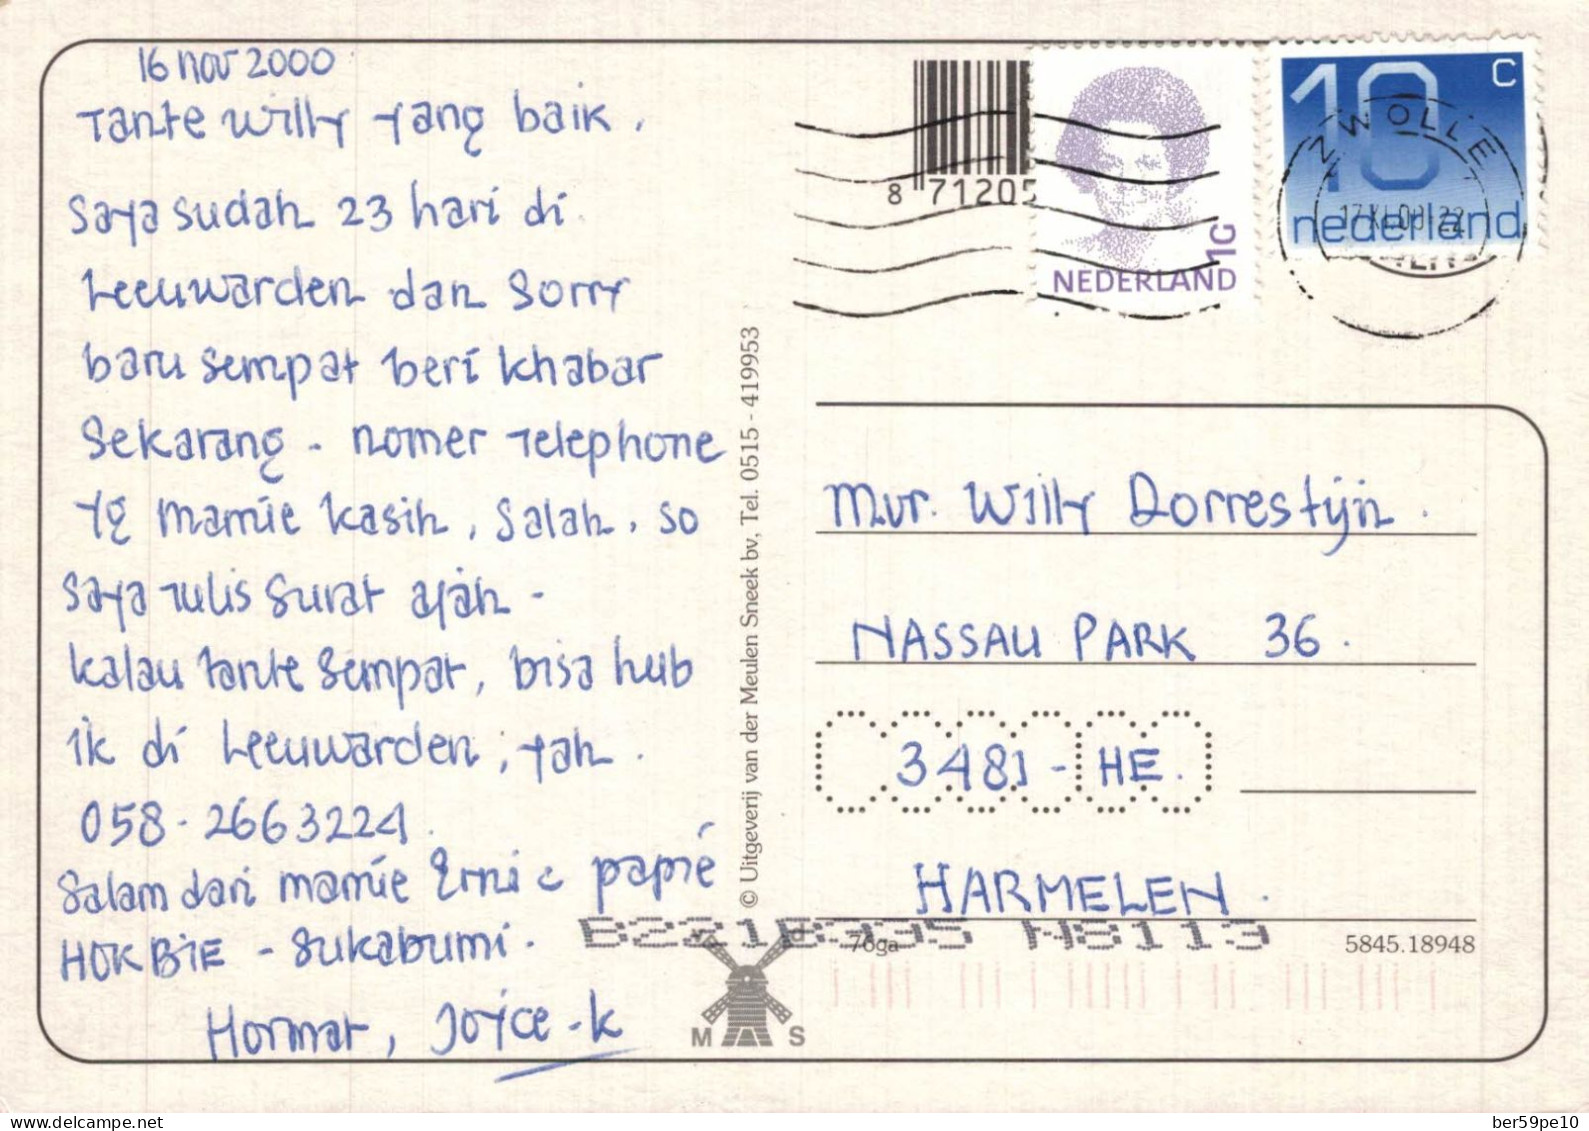 16 nov 2000
Tante Willy yang baik,
saya sudah 23 hari di
Leeuwarden dan sorry
baru sempat beri khabar
sekarang - nomer telephone
yg mamie kasih, salah, so
saya tulis surat ajah -
kalau tante sempat, bisa hub
ik di Leeuwarden, yah.
058-2663224.
Salam dari mamie Erni &  papie
HOK BIE - Sukabumi.
Hormat, Joyce-k
© Uitgeverij van der Meulen Sneek bv, Tel. 0515 - 419953
8 71205
NEDERLAND 1G
10 C
nederland
ZWOLLE
17.XI.00-22
Mvr. Willy Dorrestijn.
NASSAU PARK 36.
3481 - HE.
HARMELEN.
76ga
5845.18948
M A S
delcampe.net
ber59pe10